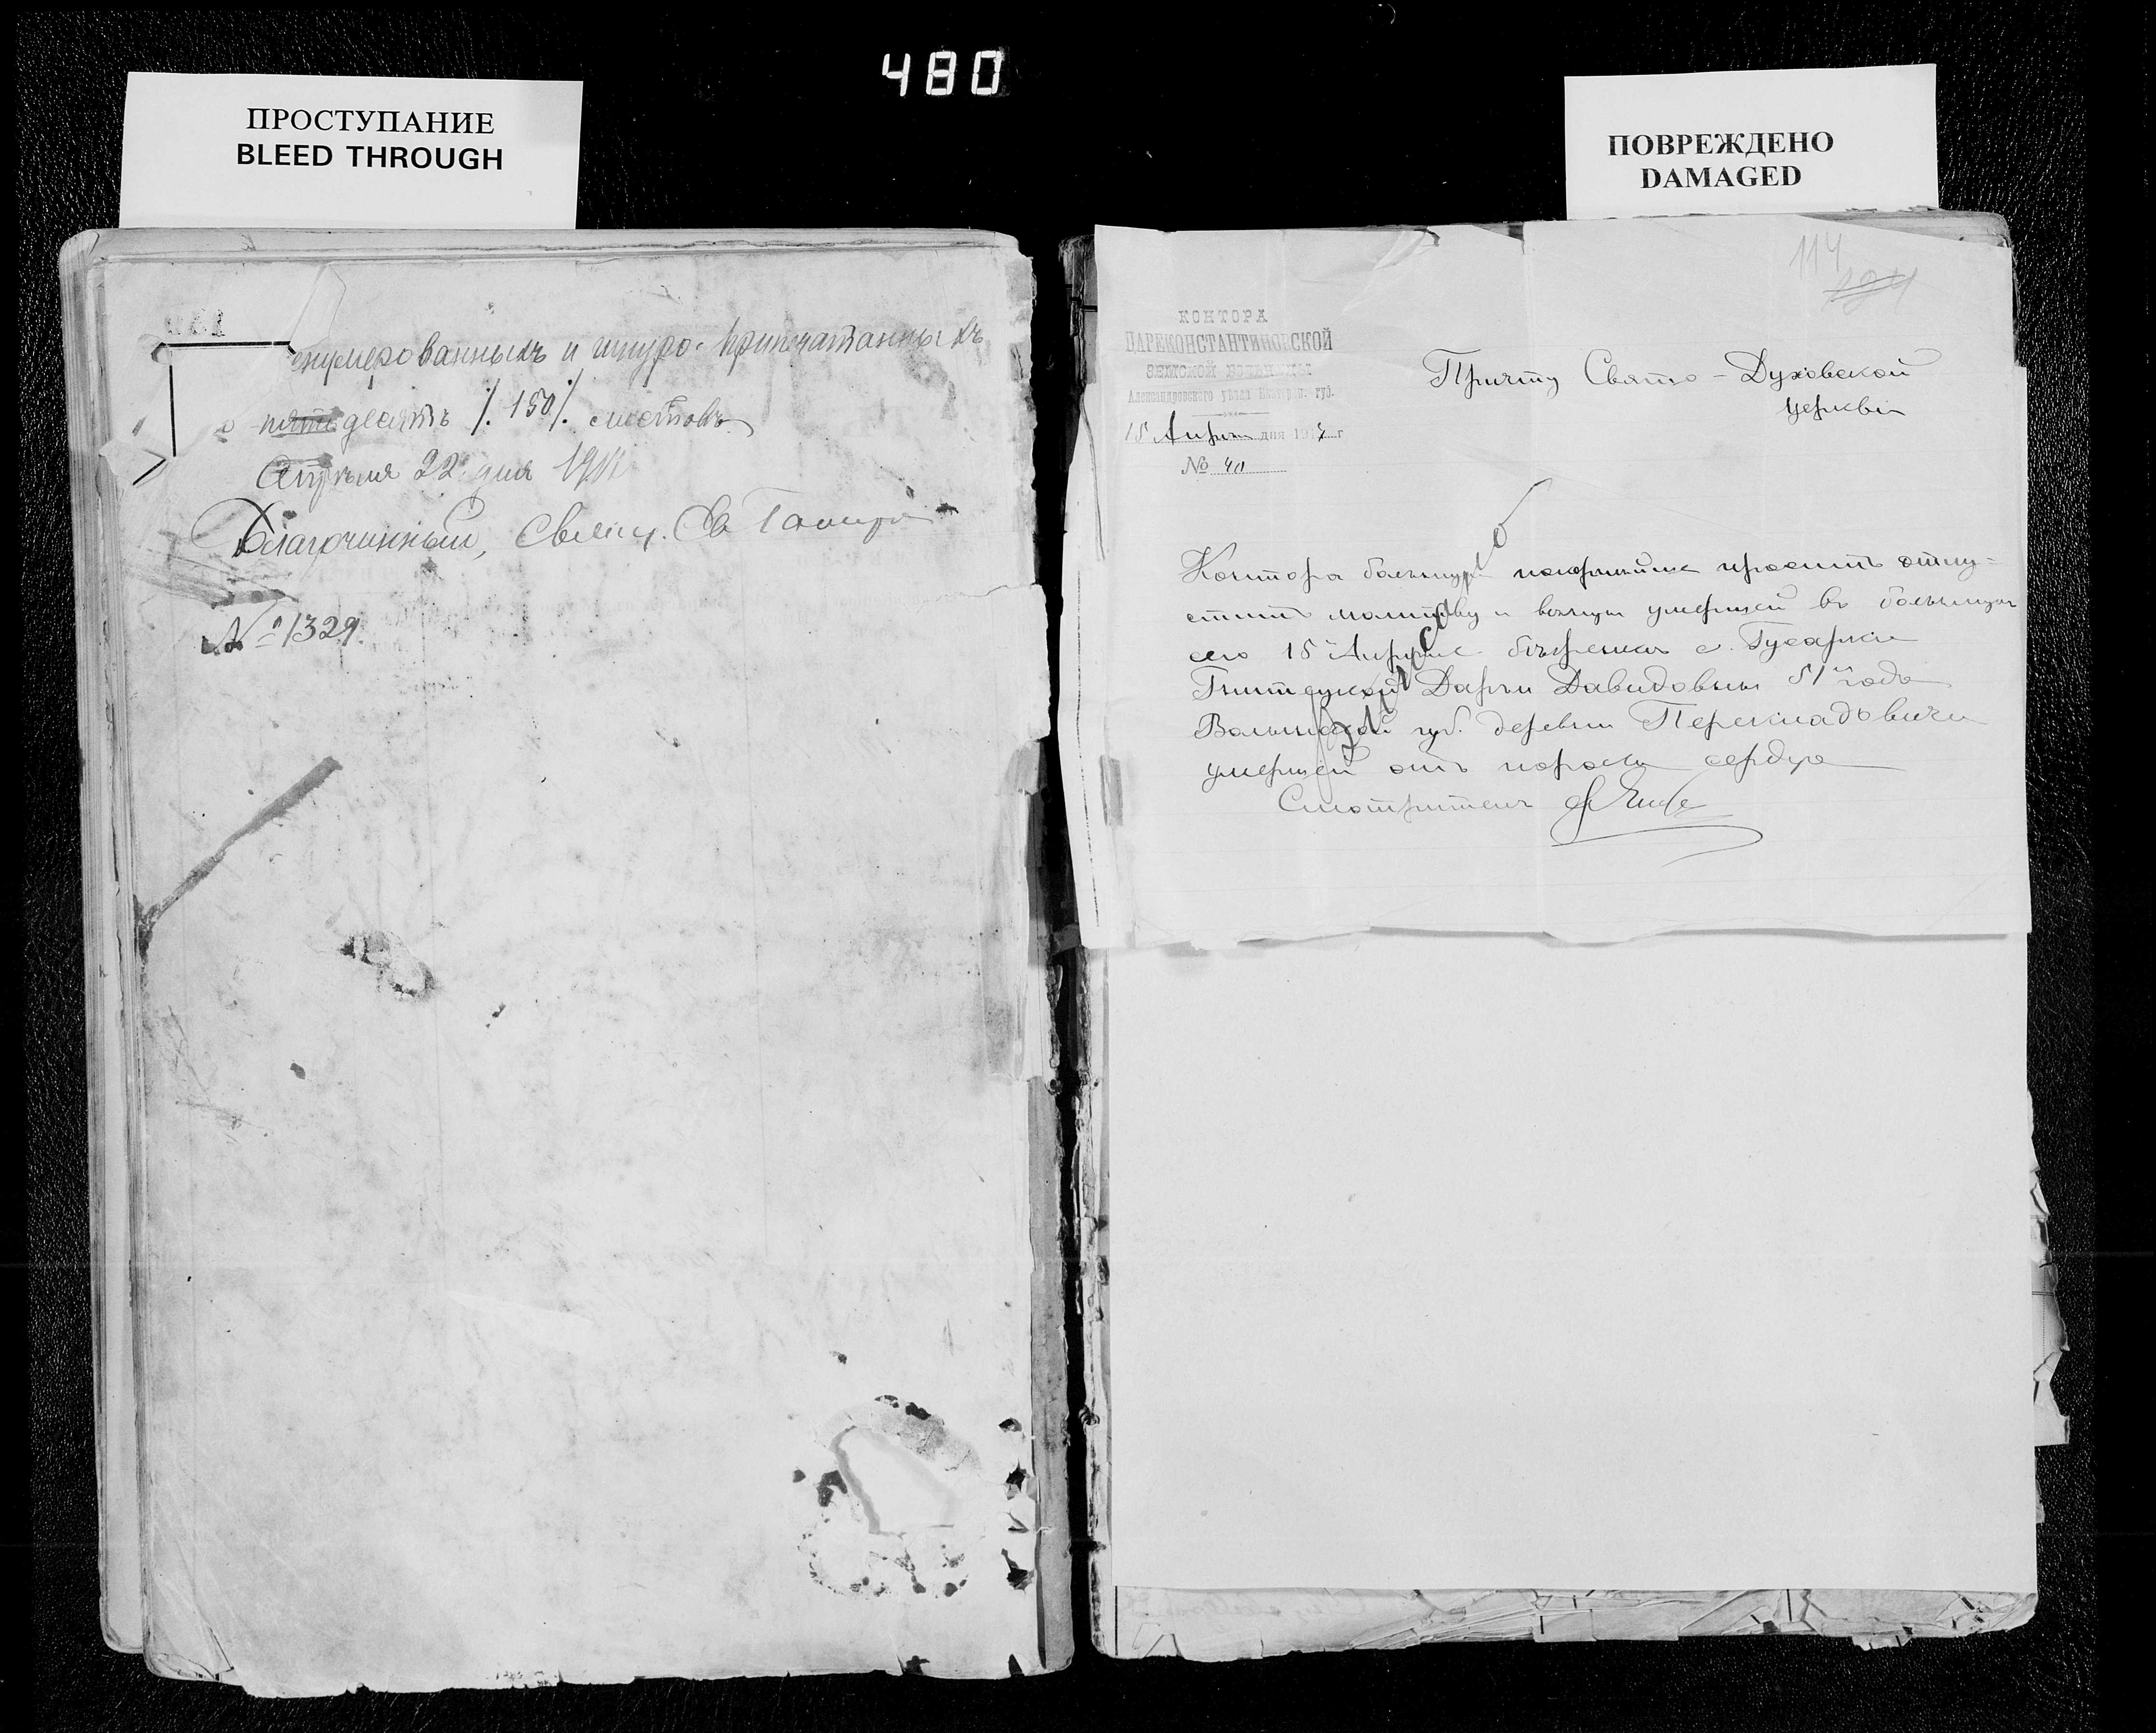 480
ПРОСТУПАНИЕ
BLEED THROUGH
ПОВРЕЖДЕНО
DAMAGED
нумерованныхъ и шнуро-припечатанныхъ
пять десятъ /. 150 /. листовъ
Апрѣля 22 дня
Благочинный, Свящ.
№ 1329.
114
124
КОНТОРА
ЦАРЕКОНСТАНТИНОВСКОЙ
ЗЕМСКОЙ БОЛЬНИЦЫ
Александровского уѣзда Екатерин. губ.
15 Апрѣля дня 1917 г
№ 40
Причту Свято-Духовской
церкви
Записано
Контора больницы покорнѣйше проситъ отпу-
стить молитву и вѣнчик умершей въ больницѣ
сего 15 Апрѣля бѣженки с. Гусарки
Дарьи Давидовны 51 года
Волынской губ. деревни
умершей отъ порока сердца
Смотритель